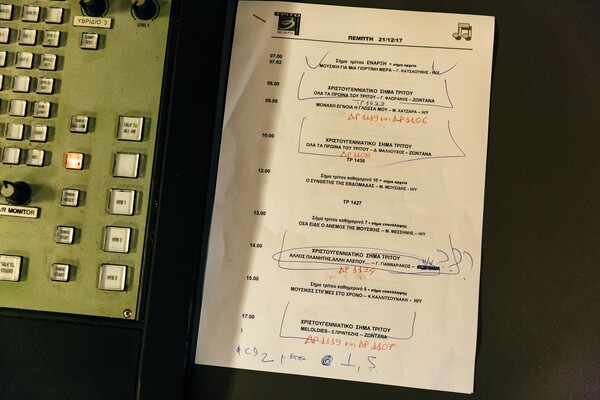 ΥΒΡΙΔΙΟ 3
ΠΕΜΠΤΗ 21/12/17
07.00
Σήμα τρίτου ΕΝΑΡΞΗ + σημα αρχείο
07.02
ΜΟΥΣΙΚΗ ΓΙΑ ΜΙΑ ΓΙΟΡΤΙΝΗ ΜΕΡΑ – Γ. ΚΑΤΣΑΟΥΝΗΣ - Η/Υ
09.00
ΧΡΙΣΤΟΥΓΕΝΝΙΑΤΙΚΟ ΣΗΜΑ ΤΡΙΤΟΥ
ΟΛΑ ΤΑ ΠΡΩΙΝΑ ΤΟΥ ΤΡΙΤΟΥ – Γ. ΦΛΩΡΑΚΗΣ – ΖΩΝΤΑΝΑ
ΤΡ 1422
09.55
ΜΟΝΑΧΗ ΕΓΝΟΙΑ Η ΓΛΩΣΣΑ ΜΟΥ – Μ. ΧΑΤΖΑΡΑ – Η/Υ
ΔΡ 1119 και ΔΡ 1106
10.00
ΧΡΙΣΤΟΥΓΕΝΝΙΑΤΙΚΟ ΣΗΜΑ ΤΡΙΤΟΥ
ΟΛΑ ΤΑ ΠΡΩΙΝΑ ΤΟΥ ΤΡΙΤΟΥ – Δ. ΜΑΛΛΟΥΧΟΣ – ΖΩΝΤΑΝΑ
ΔΡ 1108
ΤΡ 1426
12.00
Σήμα τρίτου καθημερινό 10 + σημα αρχείο
Ο ΣΥΝΘΕΤΗΣ ΤΗΣ ΕΒΔΟΜΑΔΑΣ – Μ. ΜΟΥΣΙΔΗΣ - Η/Υ
ΤΡ 1427
13.00
Σήμα τρίτου καθημερινό 7 + σημα επανάληψης
ΟΣΑ ΕΙΔΕ Ο ΑΝΕΜΟΣ ΤΗΣ ΜΟΥΣΙΚΗΣ – Μ. ΜΕΣΣΗΝΗΣ – Η/Υ
14.00
ΧΡΙΣΤΟΥΓΕΝΝΙΑΤΙΚΟ ΣΗΜΑ ΤΡΙΤΟΥ
ΑΛΛΟΣ ΠΛΑΝΗΤΗΣ,ΑΛΛΗ ΑΛΕΠΟΥ... – Γ. ΓΙΑΝΝΑΡΑΚΟΣ –
15.00
Σήμα τρίτου καθημερινό 5 + σημα επανάληψης
ΜΟΥΣΙΚΕΣ ΣΤΙΓΜΕΣ ΣΤΟ ΧΡΟΝΟ – Κ.ΚΑΛΛΙΤΣΟΥΝΑΚΗ - Η/Υ
17.00
ΧΡΙΣΤΟΥΓΕΝΝΙΑΤΙΚΟ ΣΗΜΑ ΤΡΙΤΟΥ
MELOLDIES – Σ.ΠΡΙΝΤΕΖΗΣ – ΖΩΝΤΑΝΑ
ΔΡ 1119 και ΔΡ 1107